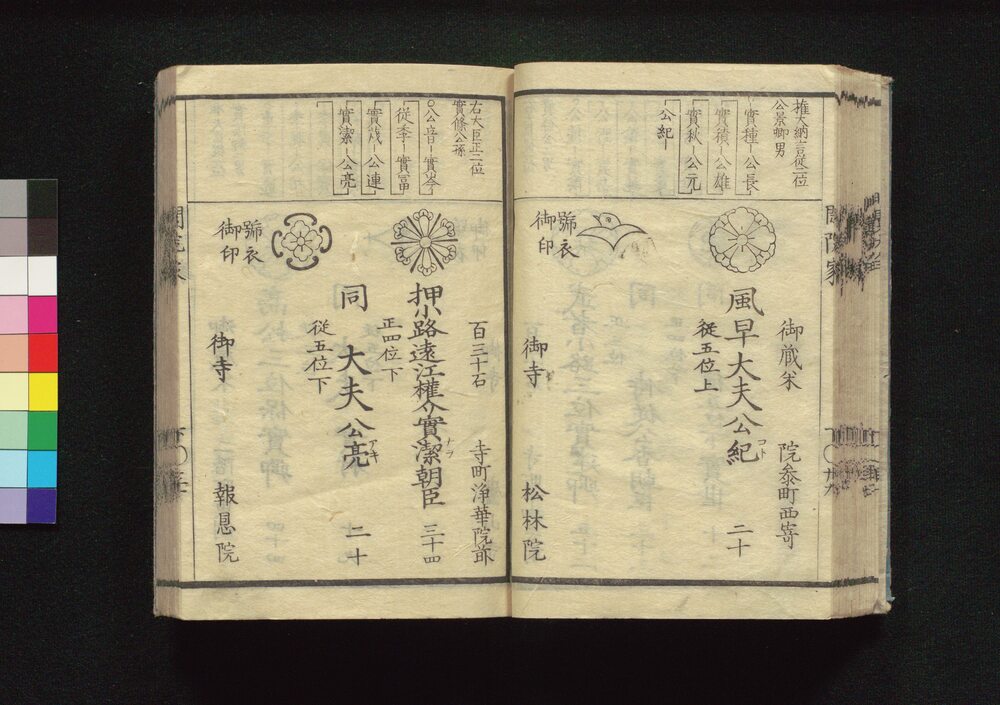 権大納言従一位
公景卿男
實種－公長
實積－公雄
實秋－公元
公紀
御蔵米
院参町西嵜
風早大夫公紀
コト
二十
従五位上
號衣
御印
御寺
松林院
右大臣正二位
實條公孫
○公音－實岑
従季－實富
實茂－公連
實潔－公亮
百三十石
寺町浄華院前
押小路遠江権介實潔朝臣
三十四
正四位下
同
大夫公亮
アキ
二十
従五位下
號衣
御印
御寺
報恩院
閑院家